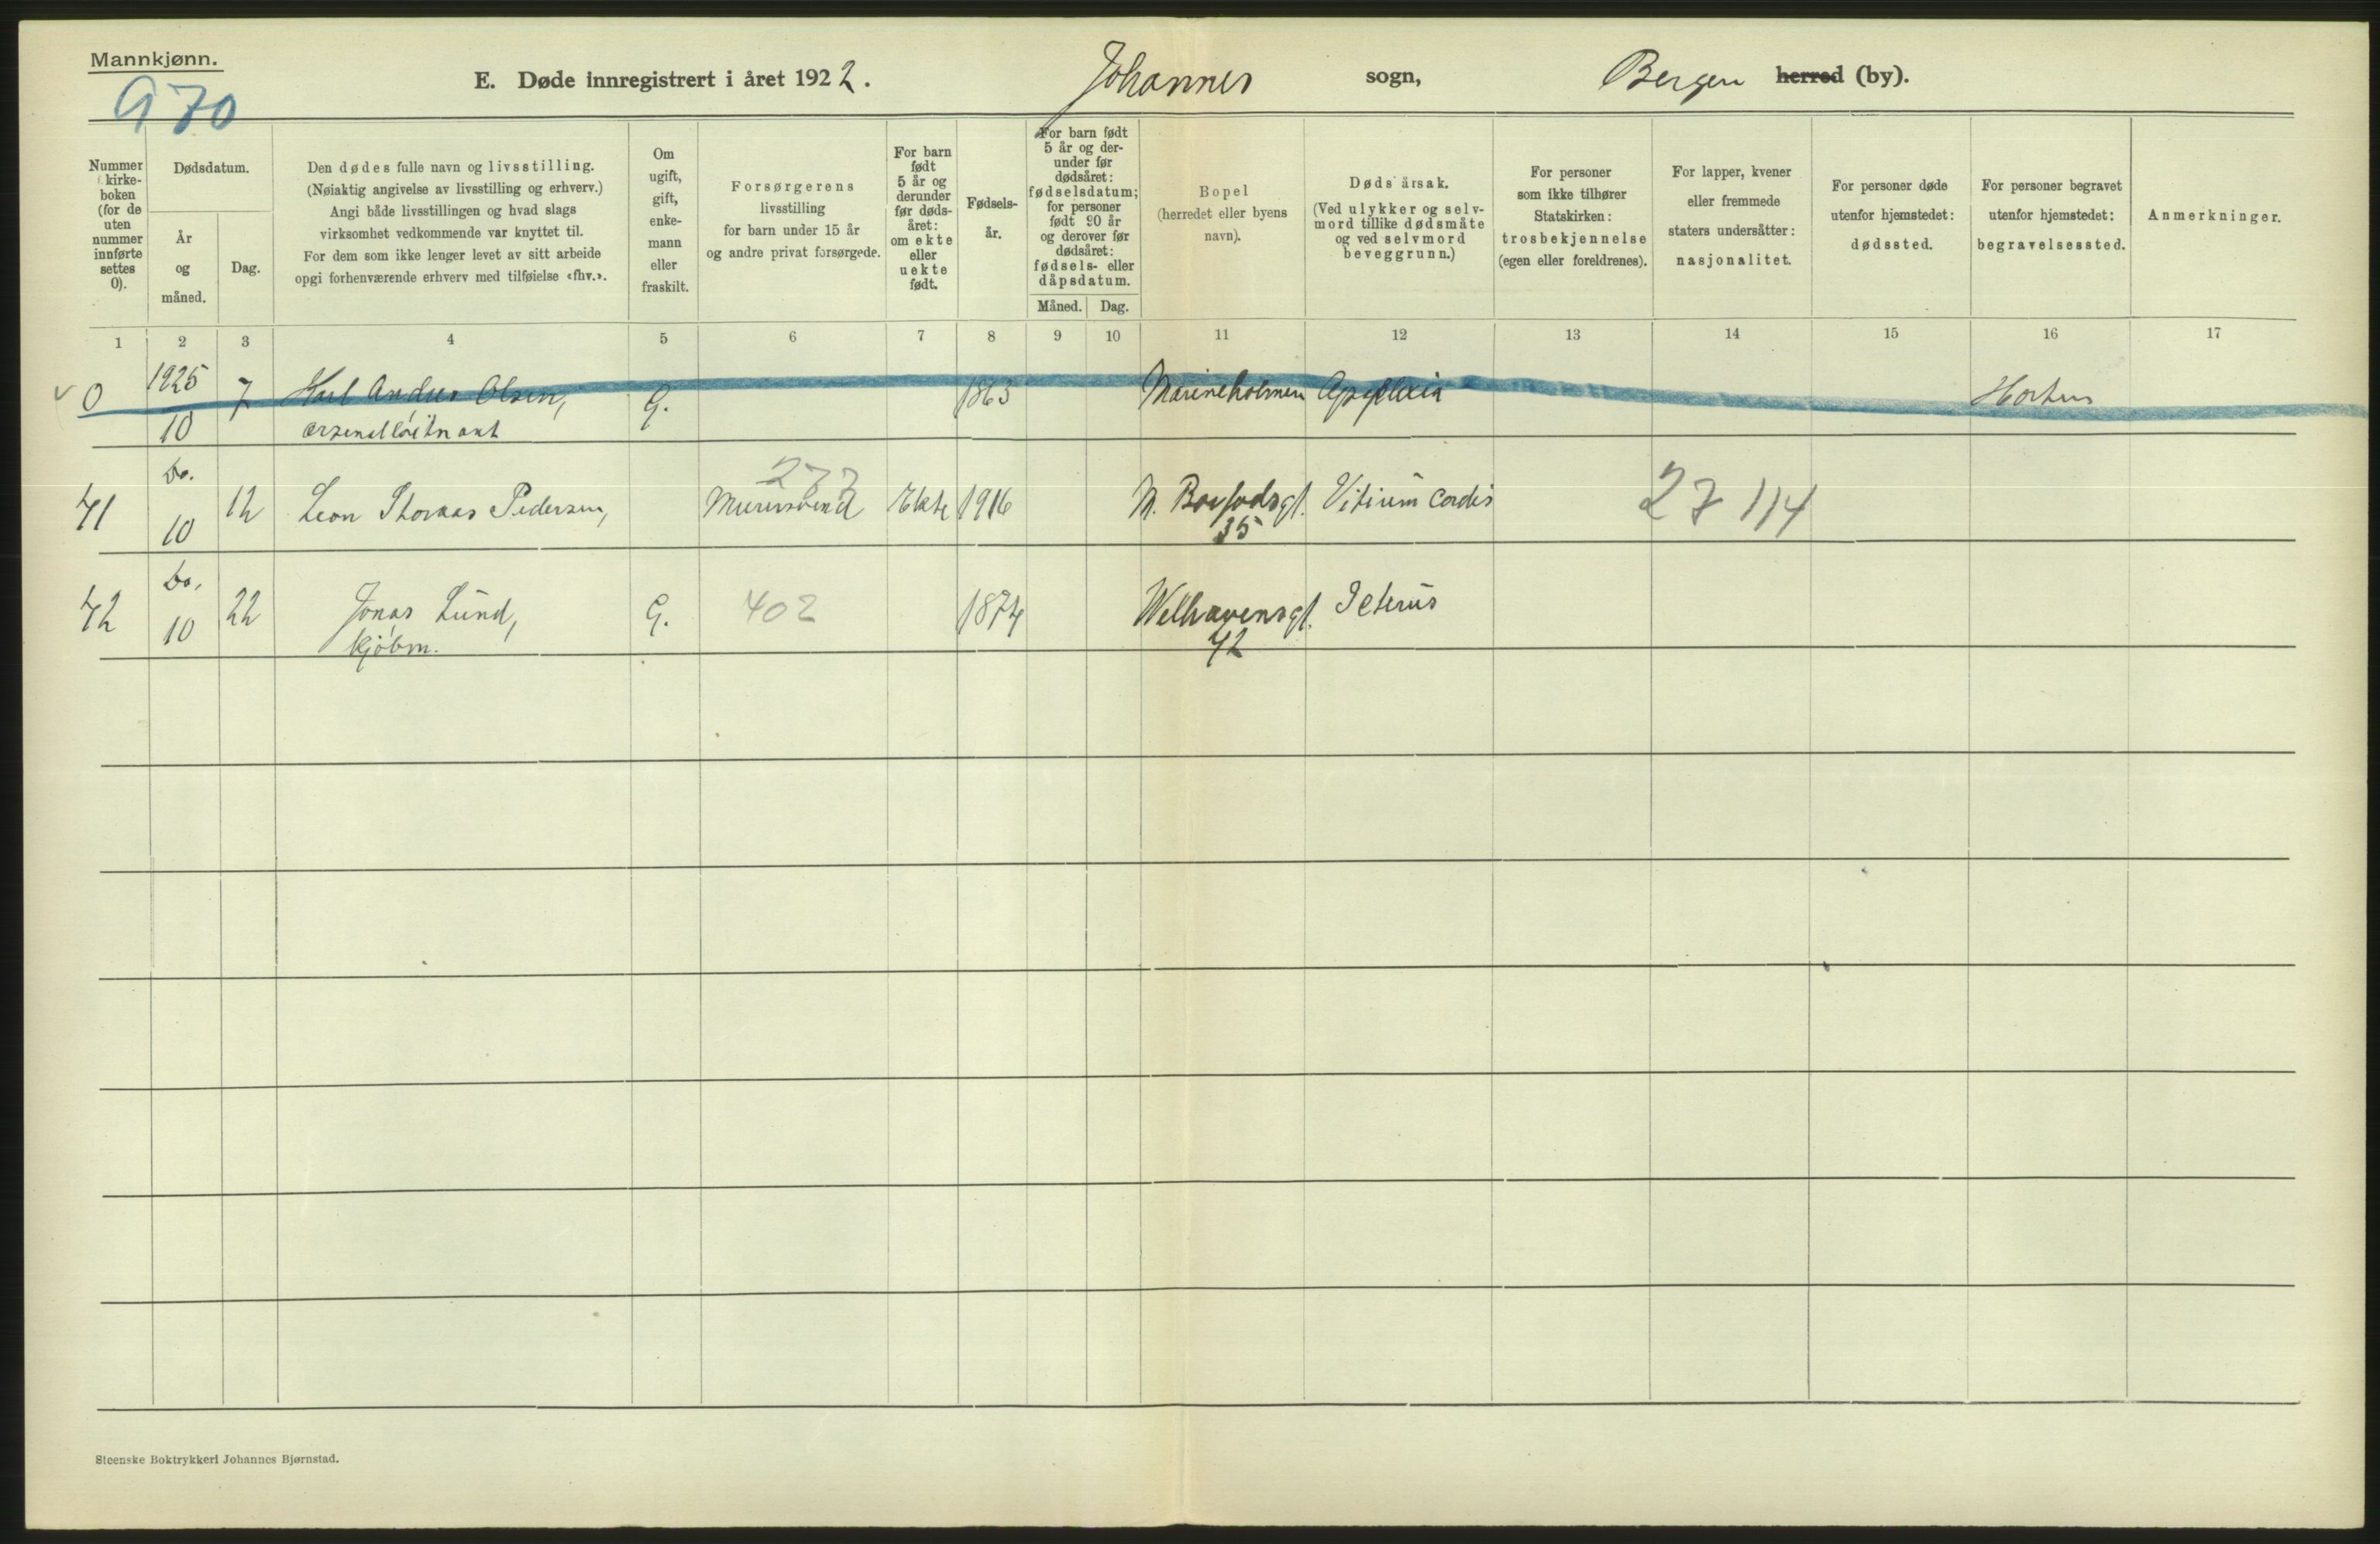 Mannkjønn.
970
E. Døde innregistrert i året 1922.
Johannes sogn,
Bergen herred (by).
Nummer
i kirke-
boken
(for de
uten
nummer
innførte
settes
0).
Dødsdatum.
År
og
måned.
Dag.
Den dødes fulle navn og livsstilling.
(Nøiaktig angivelse av livsstilling og erhverv.)
Angi både livsstillingen og hvad slags
virksomhet vedkommende var knyttet til.
For dem som ikke lenger levet av sitt arbeide
opgi forhenværende erhverv med tilføielse «fhv.».
Om
ugift,
gift,
enke-
mann
eller
fraskilt.
Forsørgerens
livsstilling
for barn under 15 år
og andre privat forsørgede.
For barn
født
5 år og
derunder
før døds-
året:
om ekte
eller
uekte
født.
Fødsels-
år.
For barn født
5 år og der-
under før
dødsåret:
fødselsdatum;
for personer
født 90 år
og derover før
dødsåret:
fødsels- eller
dåpsdatum.
Måned.
Dag.
Bopel
(herredet eller byens
navn).
Dødsårsak.
(Ved ulykker og selv-
mord tillike dødsmåte
og ved selvmord
beveggrunn.)
For personer
som ikke tilhører
Statskirken:
trosbekjennelse
(egen eller foreldrenes).
For lapper, kvener
eller fremmede
staters undersåtter:
nasjonalitet.
For personer døde
utenfor hjemstedet:
dødssted.
For personer begravet
utenfor hjemstedet:
begravelsessted.
Anmerkninger.
1 2 3 4 5 6 7 8 9 10 11 12 13 14 15 16 17
0 1925 7 Karl Andreas Olsen, G. 1863 Marineholmen Apoplexia Horten
10 arsenalløitnant
do. 277
71 12 Leon Thomas Pedersen, Murersvend Ekte 1916 Vitium Cordis 27 114
10 35
do.
72 22 Jonas Lund, G. 402 1874 Welhavensgt. Icterus
10 kjøbm. 42
Steenske Boktrykkeri Johannes Bjørnstad.